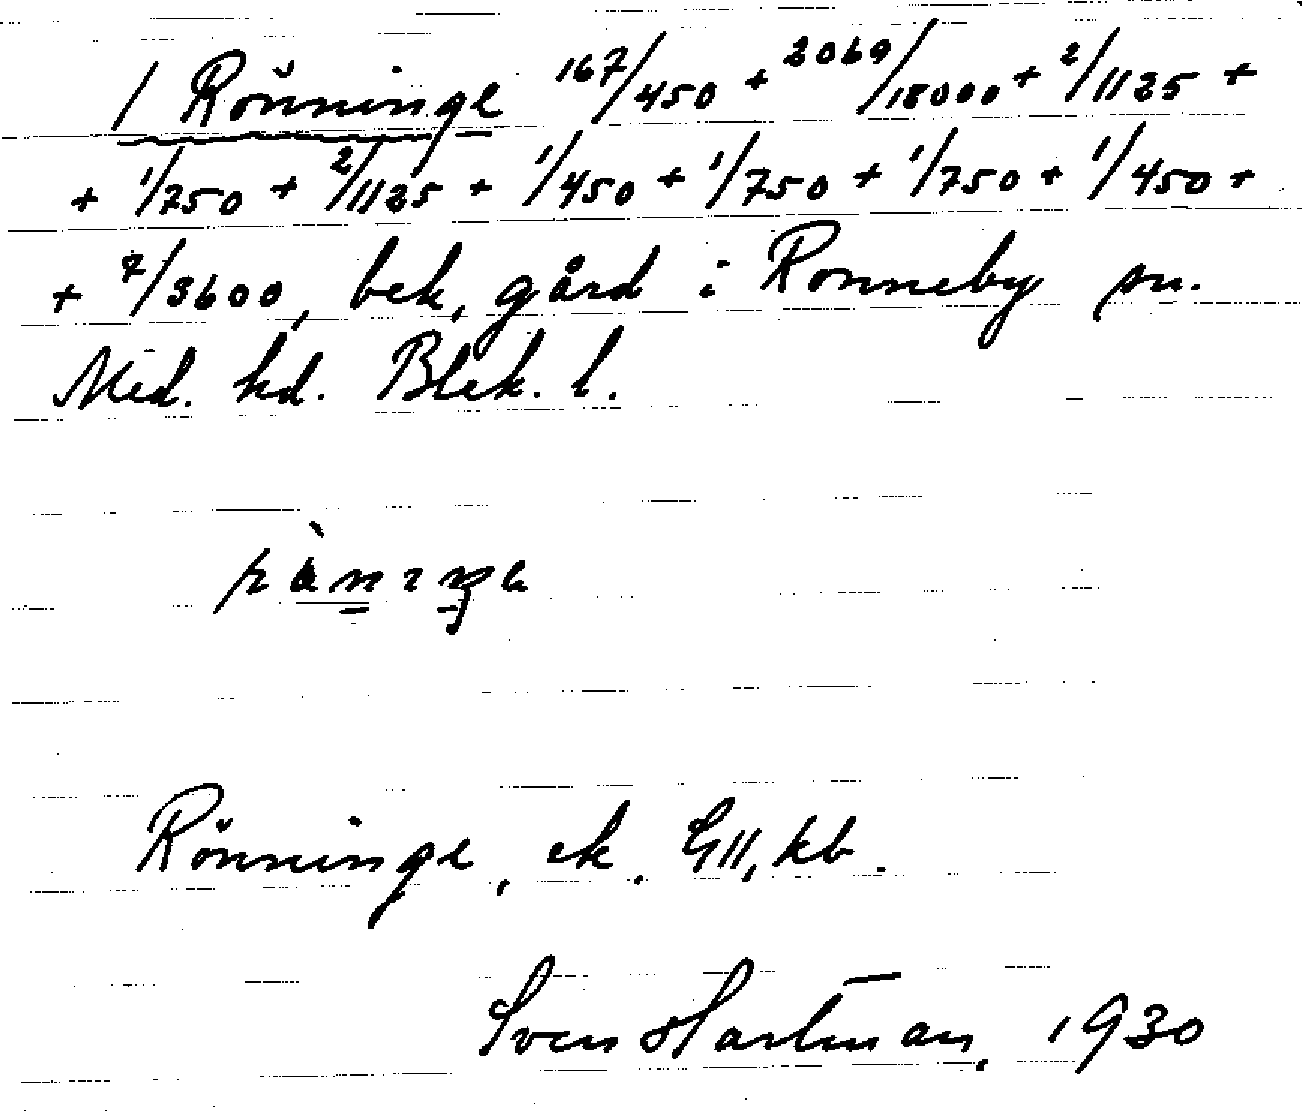 1 Rönninge 167/450 + 2069/18000 + 2/1125 +
+ 1/750 + 2/1125 + 1/450 + 1/750 + 1/750 + 1/450 +
+ 7/3600, bek, gård i Ronneby sn.
Med. hd. Blek. l.
Rönninge, ek. GII, kb.
Sven Hartman, 1930